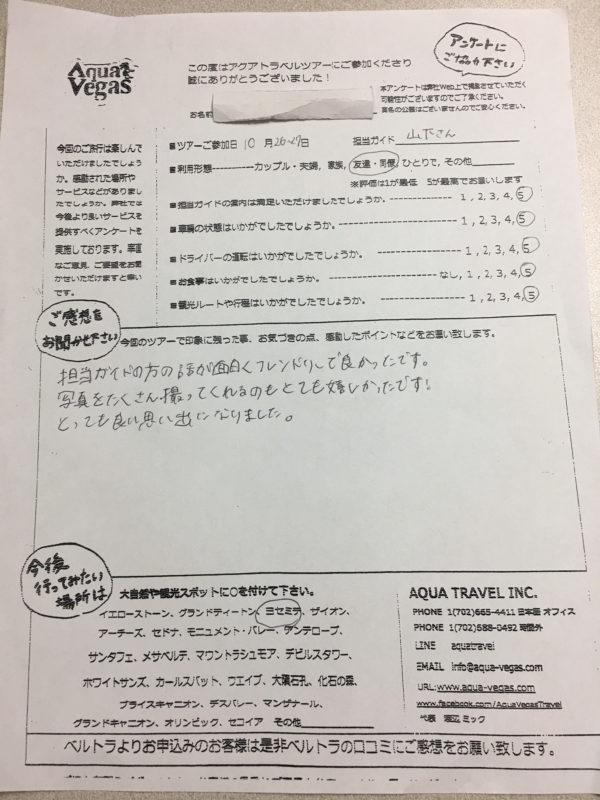 Aqua Vegas
この度はアクアトラベルツアーにご参加くださり
誠にありがとうございました！
アンケートに
ご協力下さい
本アンケートは弊社Web上で掲載させていただく
可能性がございますのでご了承ください。
実名の公開はございませんのでご安心ください。
お名前
■ツアーご参加日 10 月 26~27日 担当ガイド 山下さん
■利用形態-----------カップル・夫婦, 家族, 友達・同僚, ひとりで, その他
※評価は1が最低 5が最高でお願いします
■担当ガイドの案内は満足いただけましたでしょうか。--------------- 1 , 2, 3, 4, 5
■車輌の状態はいかがでしたでしょうか。--------------- 1 , 2, 3, 4, 5
■ドライバーの運転はいかがでしたでしょうか。--------------- 1 , 2, 3, 4, 5
■お食事はいかがでしたでしょうか。--------------- なし, 1, 2, 3, 4, 5
■観光ルートや行程はいかがでしたでしょうか。--------------- 1, 2, 3, 4, 5
今回のご旅行は楽しんで
いただけましたでしょう
か。感動された場所や
サービスなどがありまし
たでしょうか。弊社では
今後より良いサービスを
提供すべくアンケートを
実施しております。率直
なご意見、ご要望をお聞
かせいただけますと幸い
です。
ご感想を
お聞かせ下さい
今回のツアーで印象に残った事、お気づきの点、感動したポイントなどをお願い致します。
担当ガイドの方の話が面白くフレンドリーで良かったです。
写真をたくさん撮ってくれるのもとても嬉しかったです!
とっても良い思い出になりました。
今後
行ってみたい
場所は
大自然や観光スポットに○を付けて下さい。
イエローストーン、グランドティートン、ヨセミテ、ザイオン、
アーチーズ、セドナ、モニュメント・バレー、アンテロープ、
サンタフェ、メサベルデ、マウントラシュモア、デビルスタワー、
ホワイトサンズ、カールスバット、ウエイブ、大隕石孔、化石の森、
ブライスキャニオン、デスバレー、マンザナール、
グランドキャニオン、オリンピック、セコイア その他
AQUA TRAVEL INC.
PHONE 1(702)665-4411 日本語 オフィス
PHONE 1(702)688-0492 時間外
LINE aquatravel
EMAIL info@aqua-vegas.com
URL:www.aqua-vegas.com
www.facebook.com/AquaVegasTravel
代表 渡辺 ミック
ベルトラよりお申込みのお客様は是非ベルトラの口コミにご感想をお願い致します。